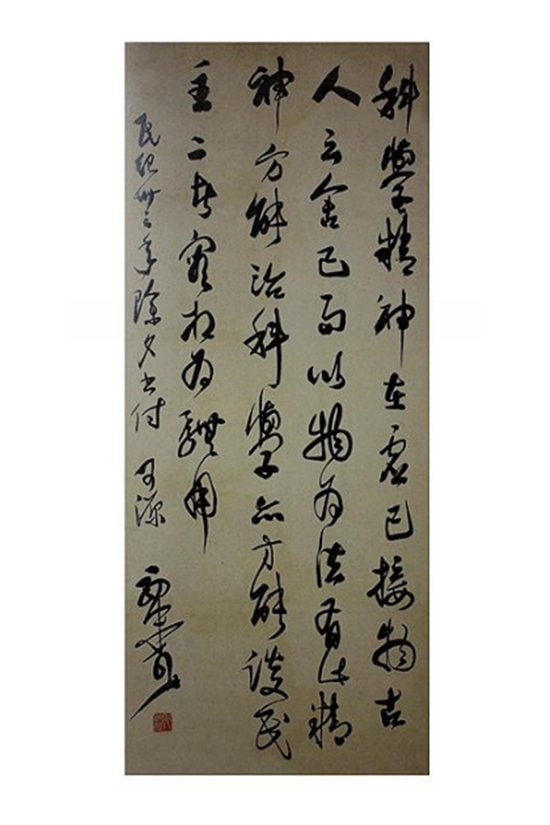 科學精神在虛己接物古
人云舍己而以物為法有此精
神方能治科學亦方能談民
主二者實相為體用
民紀卅年除夕書付可源